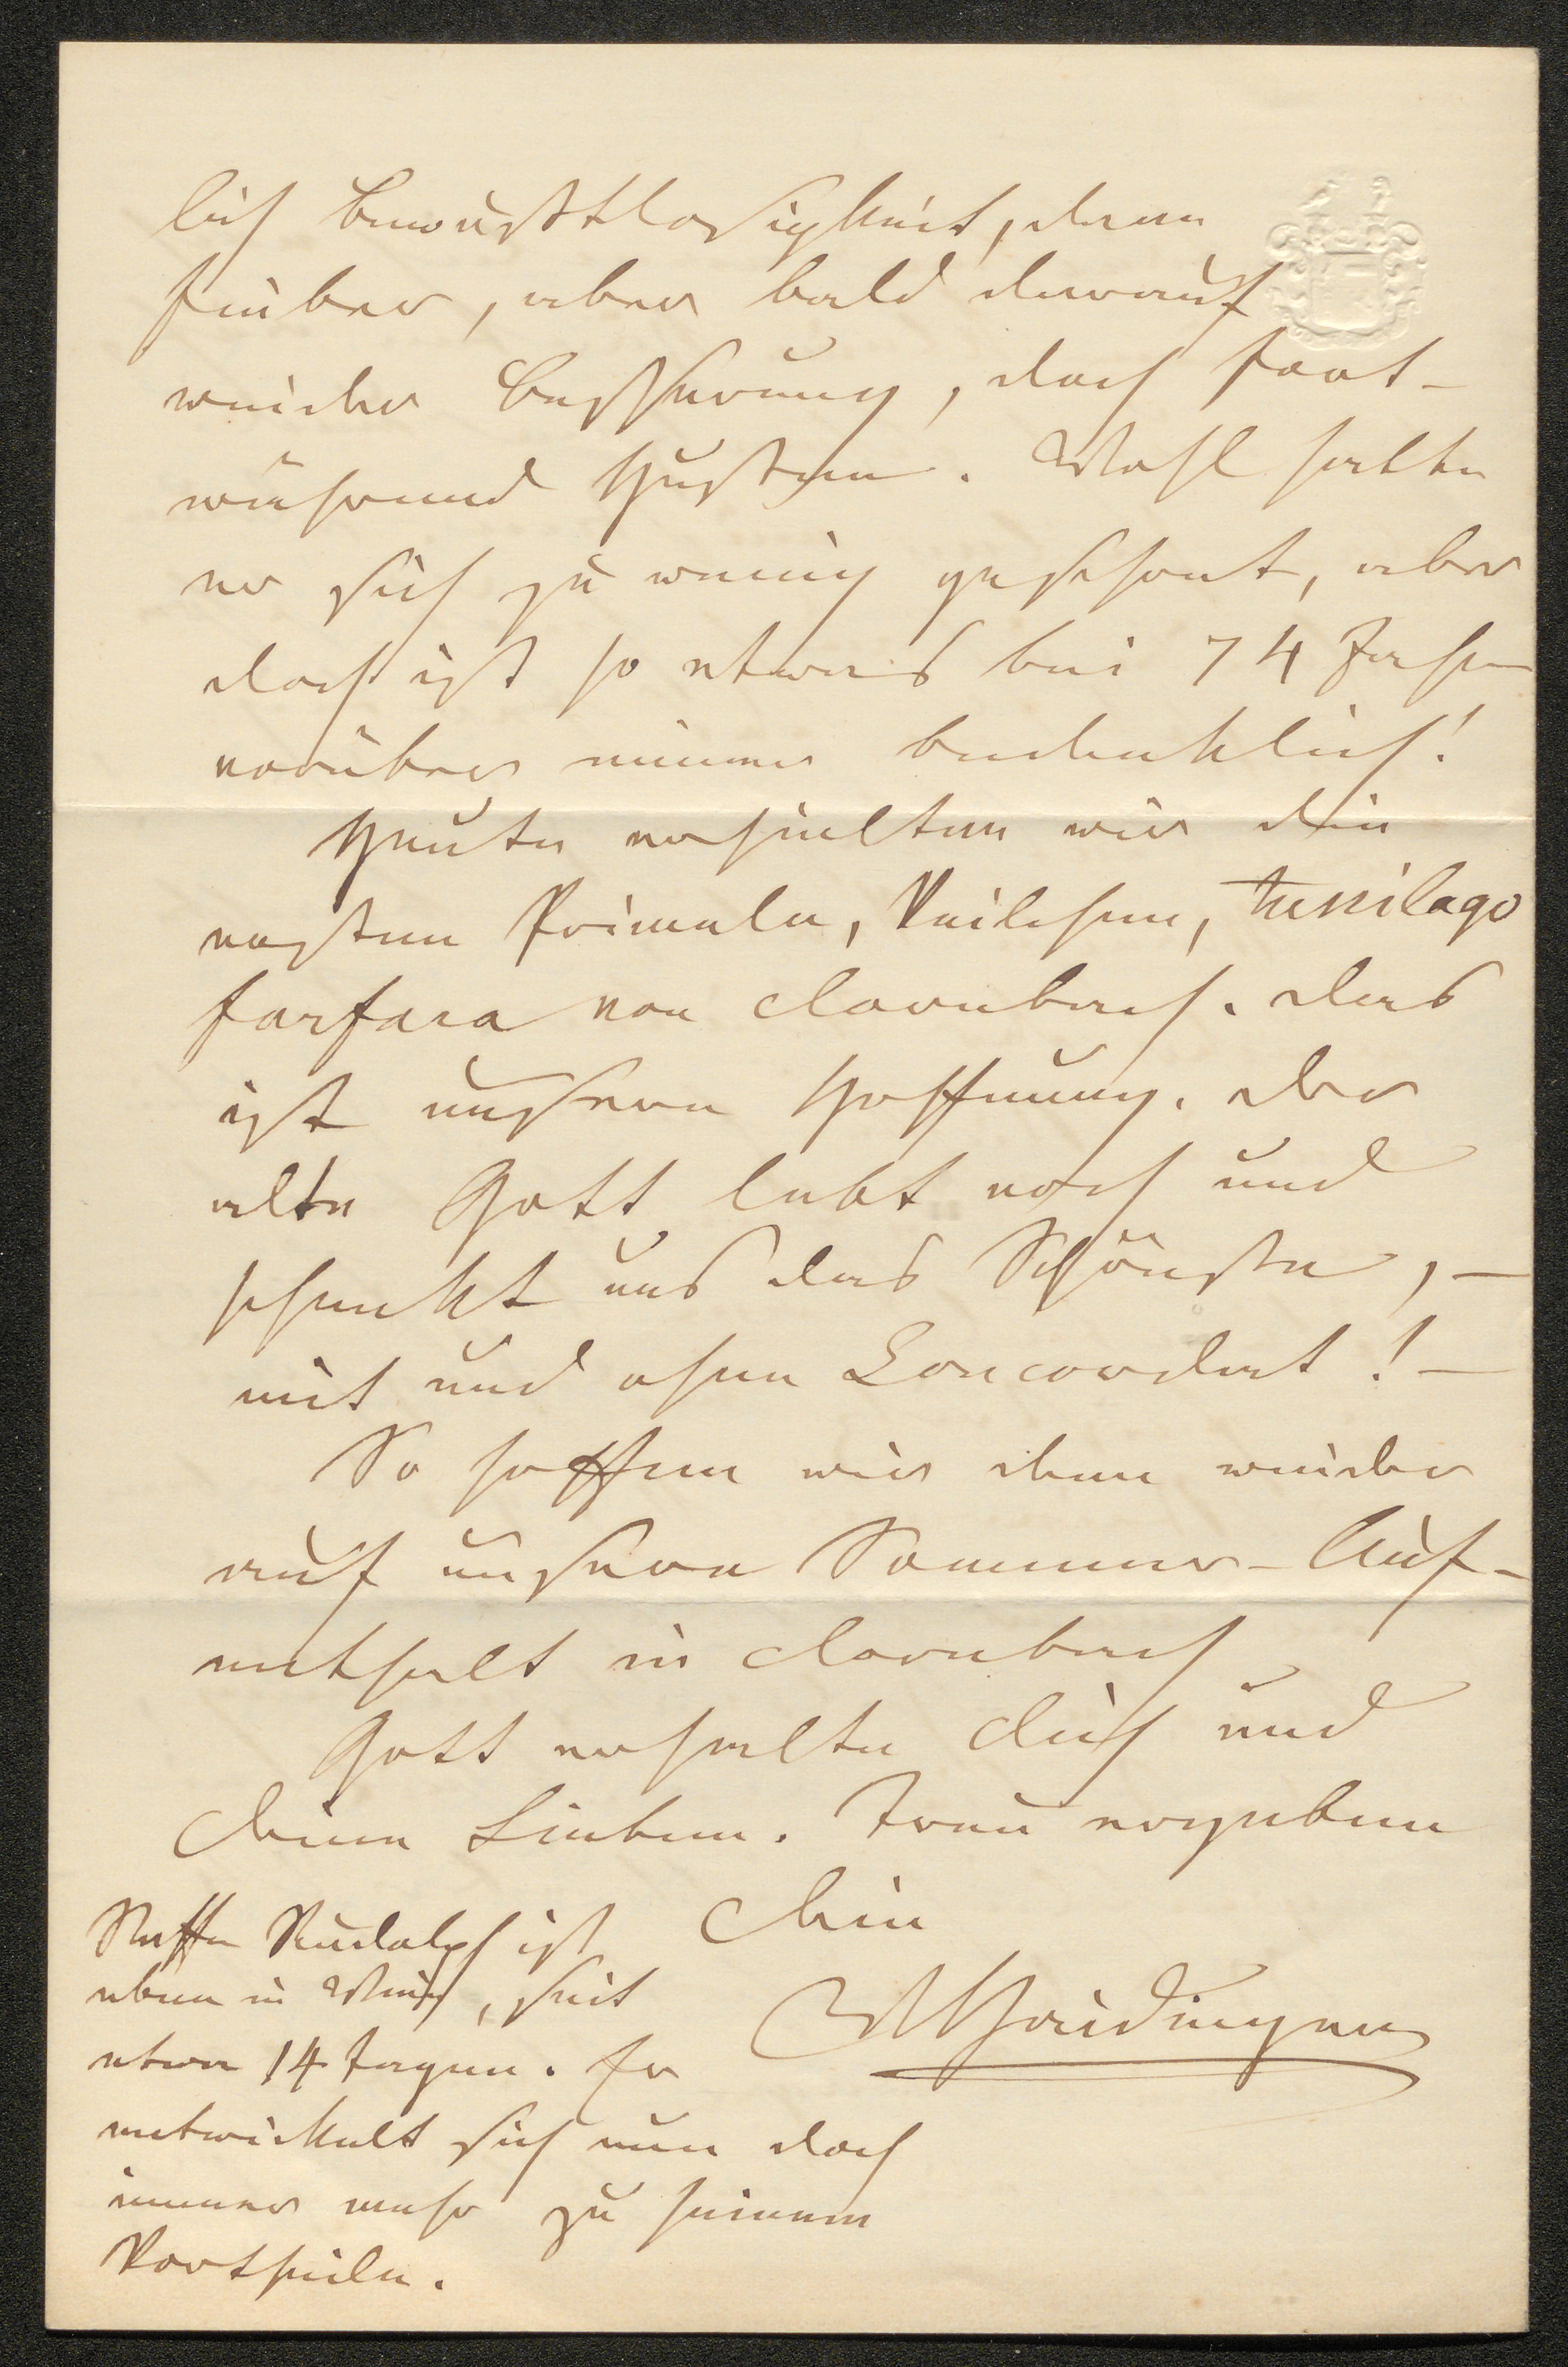 lich Bewußtlosigkeit, dann
Fieber, aber bald darauf
wieder Besserung, doch fort-
während Husten. Wohl hatte
er sich zu wenig geschont, aber
doch ist so etwas bei 74 Jahren
vorüber immer bedenklich!
Heute erhielten wir die
ersten Primeln, Veilchen, Tussilago
farfara von Dornbach. Das
ist unsere Hoffnung. Der
alte Gott lebt noch und
schenkt uns das Schönste, –
mit und ohne Concordat! –
So hoffen wir denn wieder
auf unsern Sommer-Auf-
enthalt in Dornbach
Gott erhalte Dich und
Deine Lieben. Treu ergeben
Dein
WHaidinger
Neffe Rudolph ist
eben in Wien, seit
etwa 14 Tagen. Er
entwickelt sich nun doch
immer mehr zu seinem
Vortheile.